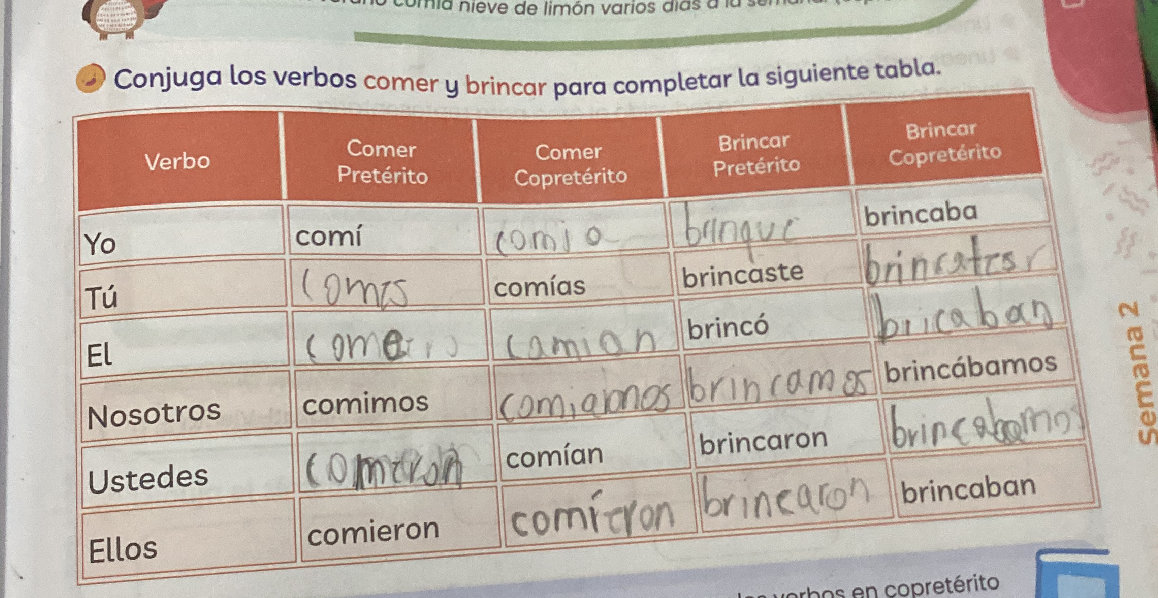 comía nieve de limón varios días a la
Conjuga los verbos comer y brincar para completar la siguiente tabla.
Verbo Comer Pretérito Comer Copretérito Brincar Pretérito Brincar Copretérito
Yo comí comio brinque brincaba
Tú comías brincaste
El camian brincó bricaban
Nosotros comimos comiamos brincamos brincábamos
Ustedes comeron comían brincaron brincabamos
Ellos comieron comieron brincaron brincaban
Semana 2
verbos en copretérito